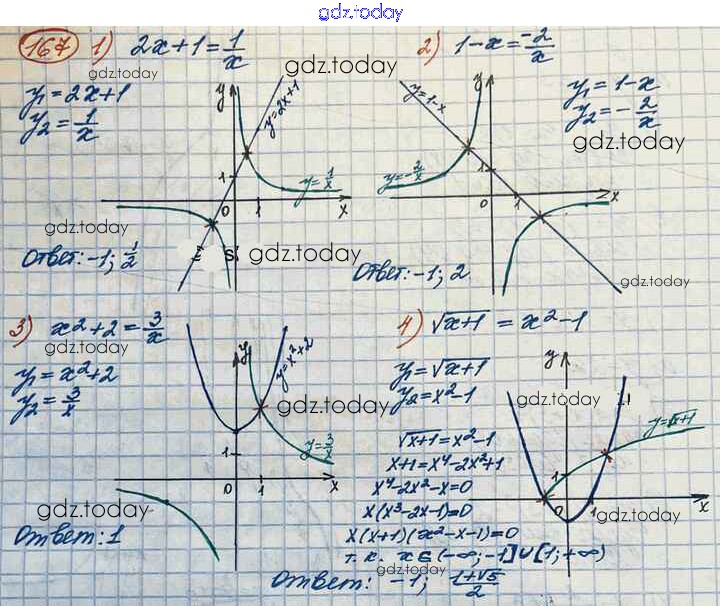 gdz.today
167 1) 2x+1=1/x
gdz.today
y₁=2x+1
y₂=1/x
y
y=2x+1
gdz.today
1
y=1/x
0
1
x
gdz.today
Ответ: -1; 1/2
gdz.today
2) 1-x=-2/x
y₁=1-x
y₂=-2/x
gdz.today
y
y=1-x
1
y=-2/x
0
1
x
gdz.today
Ответ: -1; 2
3) x²+2=3/x
gdz.today
y₁=x²+2
y₂=3/x
y
y=x²+2
gdz.today
1
y=3/x
0
1
x
gdz.today
Ответ: 1
4) √x+1 = x²-1
y₁=√x+1
y₂=x²-1
y
gdz.today
y=√x+1
1
0
1
x
gdz.today
√x+1=x²-1
x+1=x⁴-2x²+1
x⁴-2x²-x=0
x(x³-2x-1)=0
x(x+1)(x²-x-1)=0
т.к. x∈(-∞;-1]∪[1;+∞)
gdz.today
Ответ: -1; (1+√5)/2